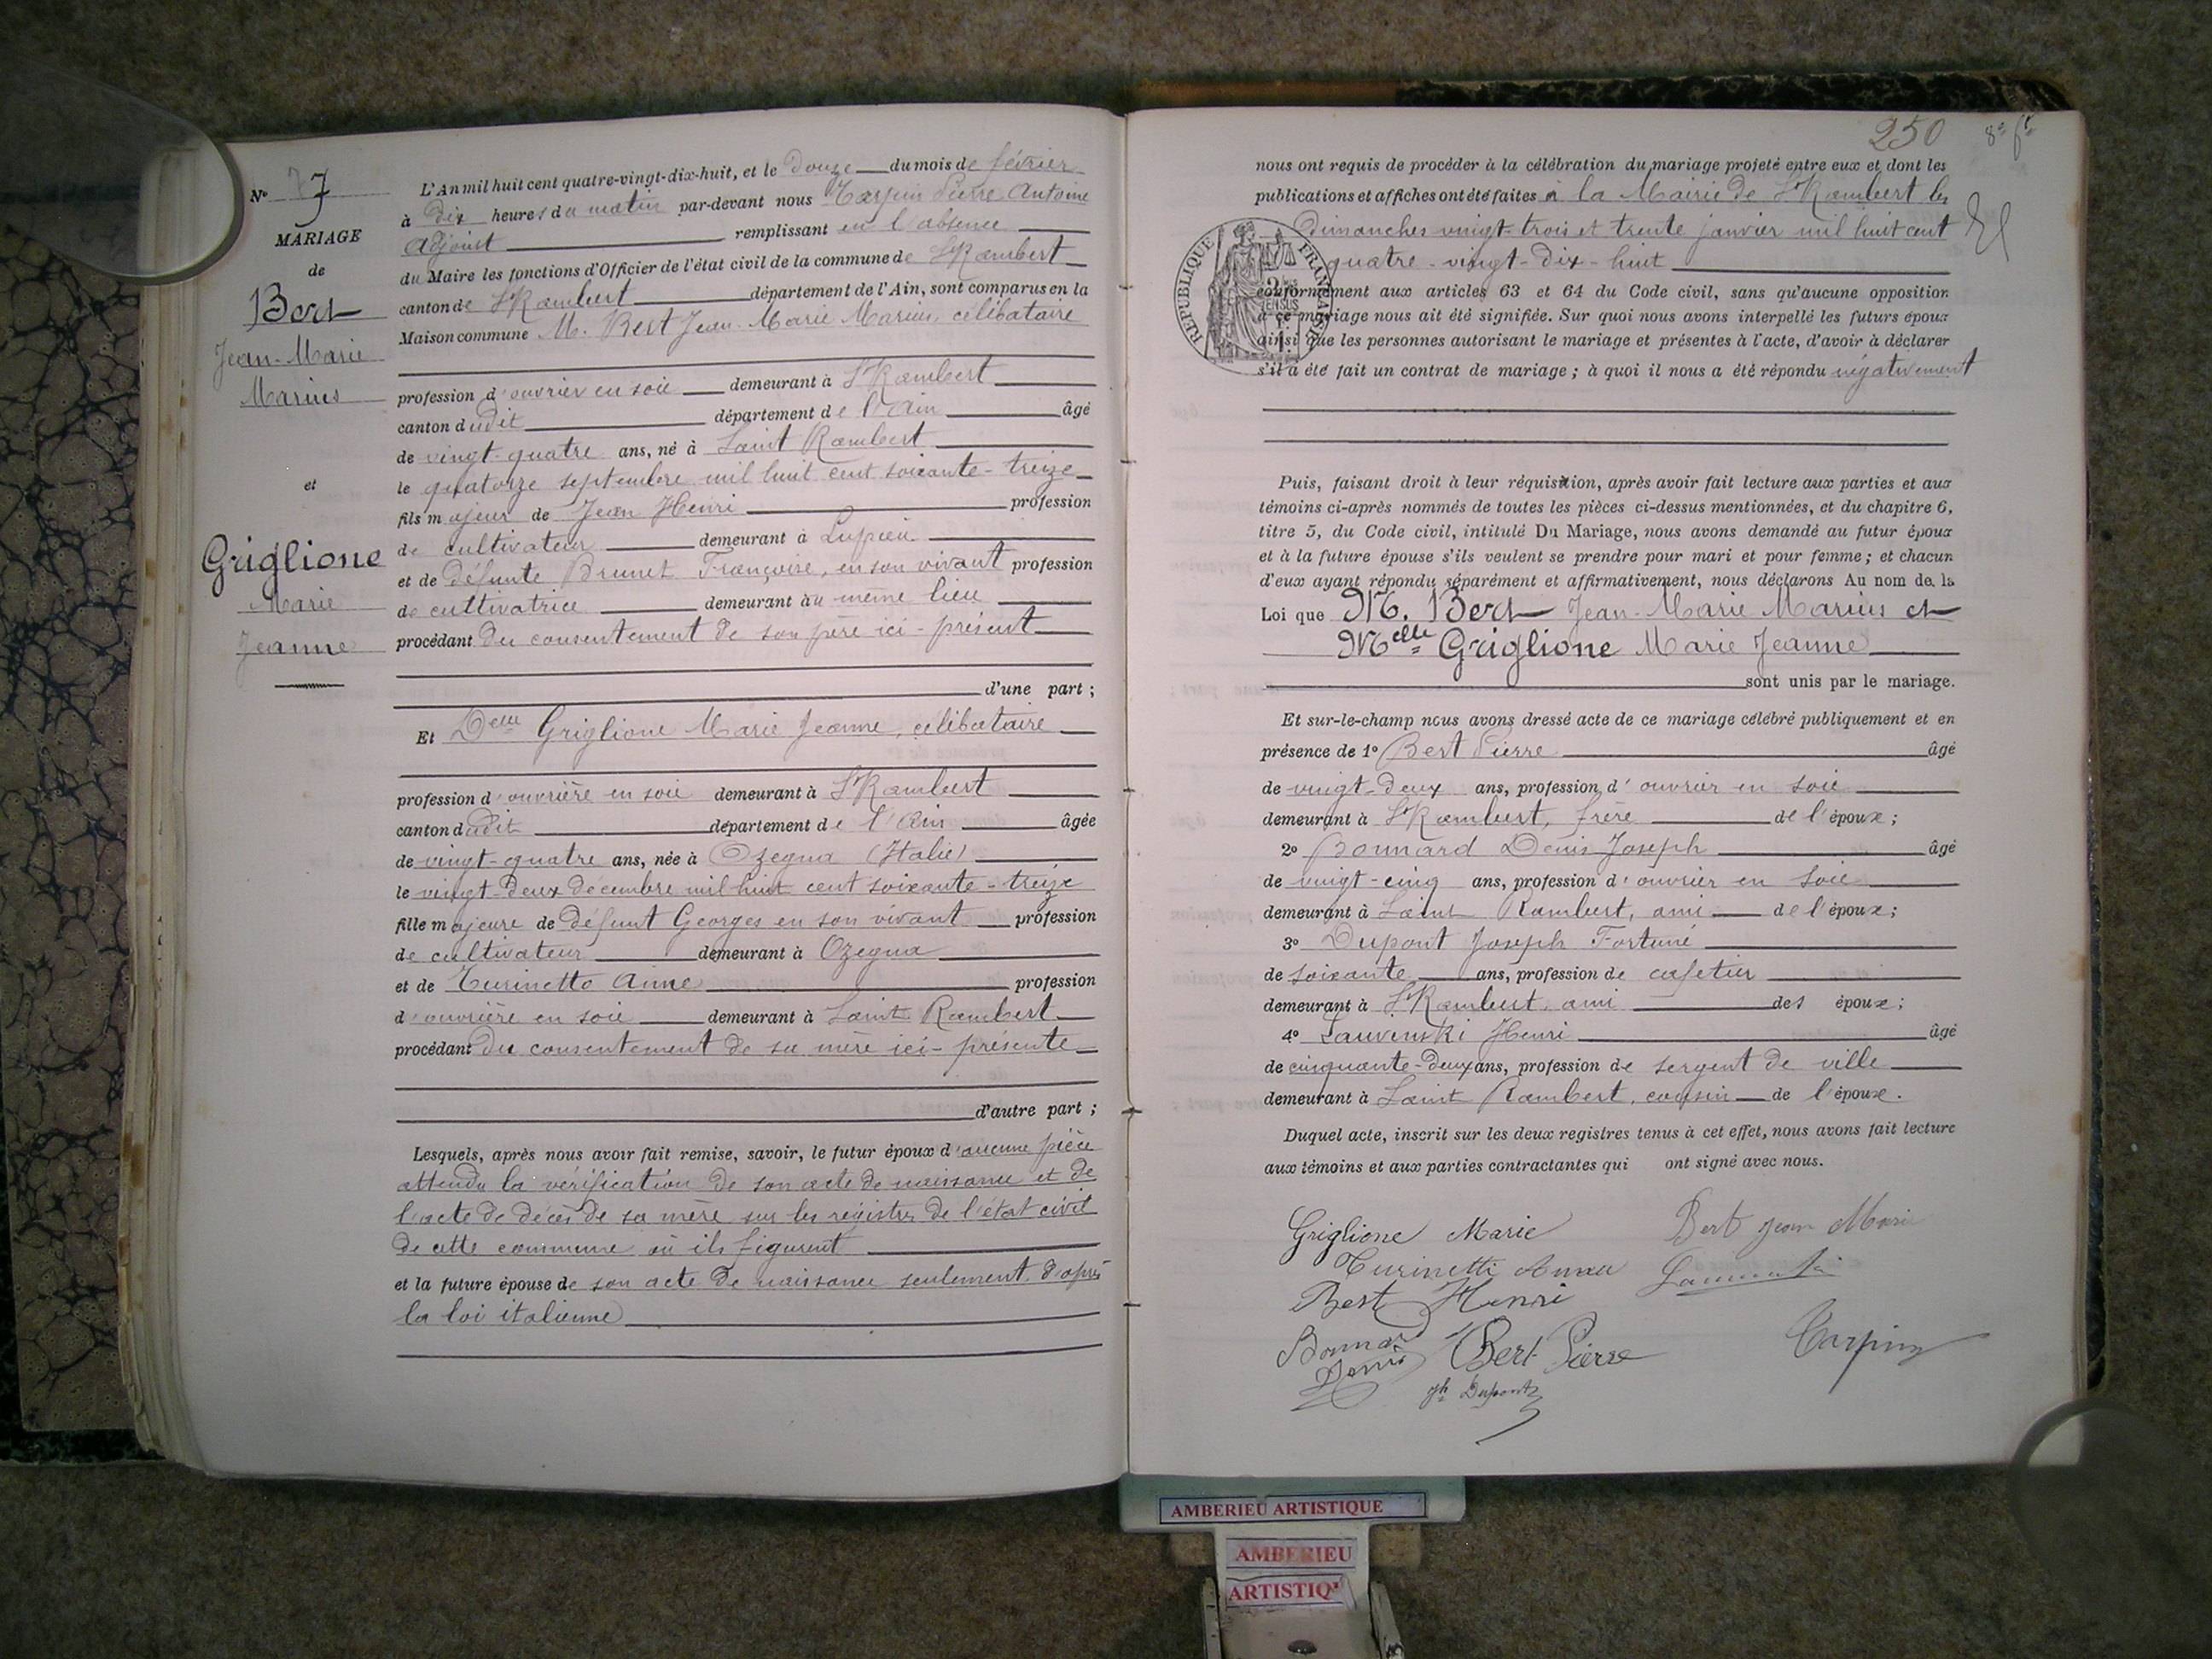 N° 7
MARIAGE
de
Bert
Jean-Marie
Marius
et
Griglione
Marie
Jeanne
L'An mil huit cent quatre-vingt-dix-huit, et le douze du mois de février
à dix heures du matin par-devant nous Tarpin Pierre Antoine
adjoint remplissant en l'absence
du Maire les fonctions d'Officier de l'état civil de la commune de St Rambert
canton de St Rambert département de l'Ain, sont comparus en la
Maison commune M. Bert Jean-Marie Marius, célibataire
profession d'ouvrier en soie demeurant à St Rambert
canton dudit département de l'Ain âgé
de vingt-quatre ans, né à Saint Rambert
le quatorze septembre mil huit cent soixante-treize
fils majeur de Jean Henri profession
de cultivateur demeurant à Luprieu
et de défunte Brunet Françoise, en son vivant profession
de cultivatrice demeurant au même lieu
procédant du consentement de son père ici-présent
d'une part ;
Et Delle Griglione Marie Jeanne, célibataire
profession d'ouvrière en soie demeurant à St Rambert
canton dudit département de l'Ain âgée
de vingt-quatre ans, née à Ozegna (Italie)
le vingt-deux décembre mil huit cent soixante-treize
fille majeure de défunt Georges en son vivant profession
de cultivateur demeurant à Ozegna
et de Turinetto Anne profession
d'ouvrière en soie demeurant à Saint Rambert
procédant du consentement de sa mère ici-présente
d'autre part ;
Lesquels, après nous avoir fait remise, savoir, le futur époux d'aucune pièce
attendu la vérification de son acte de naissance et de
l'acte de décès de sa mère sur les registres de l'état civil
de cette commune où ils figurent
et la future épouse de son acte de naissance seulement, d'après
la loi italienne
250
nous ont requis de procéder à la célébration du mariage projeté entre eux et dont les
publications et affiches ont été faites à la Mairie de St Rambert les
Dimanches vingt-trois et trente janvier mil huit cent
quatre-vingt-dix-huit
REPUBLIQUE FRANÇAISE
conformément aux articles 63 et 64 du Code civil, sans qu'aucune opposition
à ce mariage nous ait été signifiée. Sur quoi nous avons interpellé les futurs époux
ainsi que les personnes autorisant le mariage et présentes à l'acte, d'avoir à déclarer
s'il a été fait un contrat de mariage ; à quoi il nous a été répondu négativement
Puis, faisant droit à leur réquisition, après avoir fait lecture aux parties et aux
témoins ci-après nommés de toutes les pièces ci-dessus mentionnées, et du chapitre 6,
titre 5, du Code civil, intitulé Du Mariage, nous avons demandé au futur époux
et à la future épouse s'ils veulent se prendre pour mari et pour femme ; et chacun
d'eux ayant répondu séparément et affirmativement, nous déclarons Au nom de la
Loi que M. Bert Jean-Marie Marius et
Melle Griglione Marie Jeanne
sont unis par le mariage.
Et sur-le-champ nous avons dressé acte de ce mariage célébré publiquement et en
présence de 1° Bert Pierre âgé
de vingt-deux ans, profession d'ouvrier en soie
demeurant à St Rambert, frère de l'époux ;
2° Bonnard Denis Joseph âgé
de vingt-cinq ans, profession d'ouvrier en soie
demeurant à Saint Rambert, ami de l'époux ;
3° Dupont Joseph Fortuné
de soixante ans, profession de cafetier
demeurant à St Rambert, ami des époux ;
4° Sauvinski Henri âgé
de cinquante-deux ans, profession de sergent de ville
demeurant à Saint Rambert, cousin de l'époux.
Duquel acte, inscrit sur les deux registres tenus à cet effet, nous avons fait lecture
aux témoins et aux parties contractantes qui ont signé avec nous.
Griglione Marie Bert Jean Marie
Turinetti Anna
Bert Henri
Bonnard Denis Bert Pierre Tarpin
Jh Dupont
AMBERIEU ARTISTIQUE
AMBERIEU
ARTISTIQ